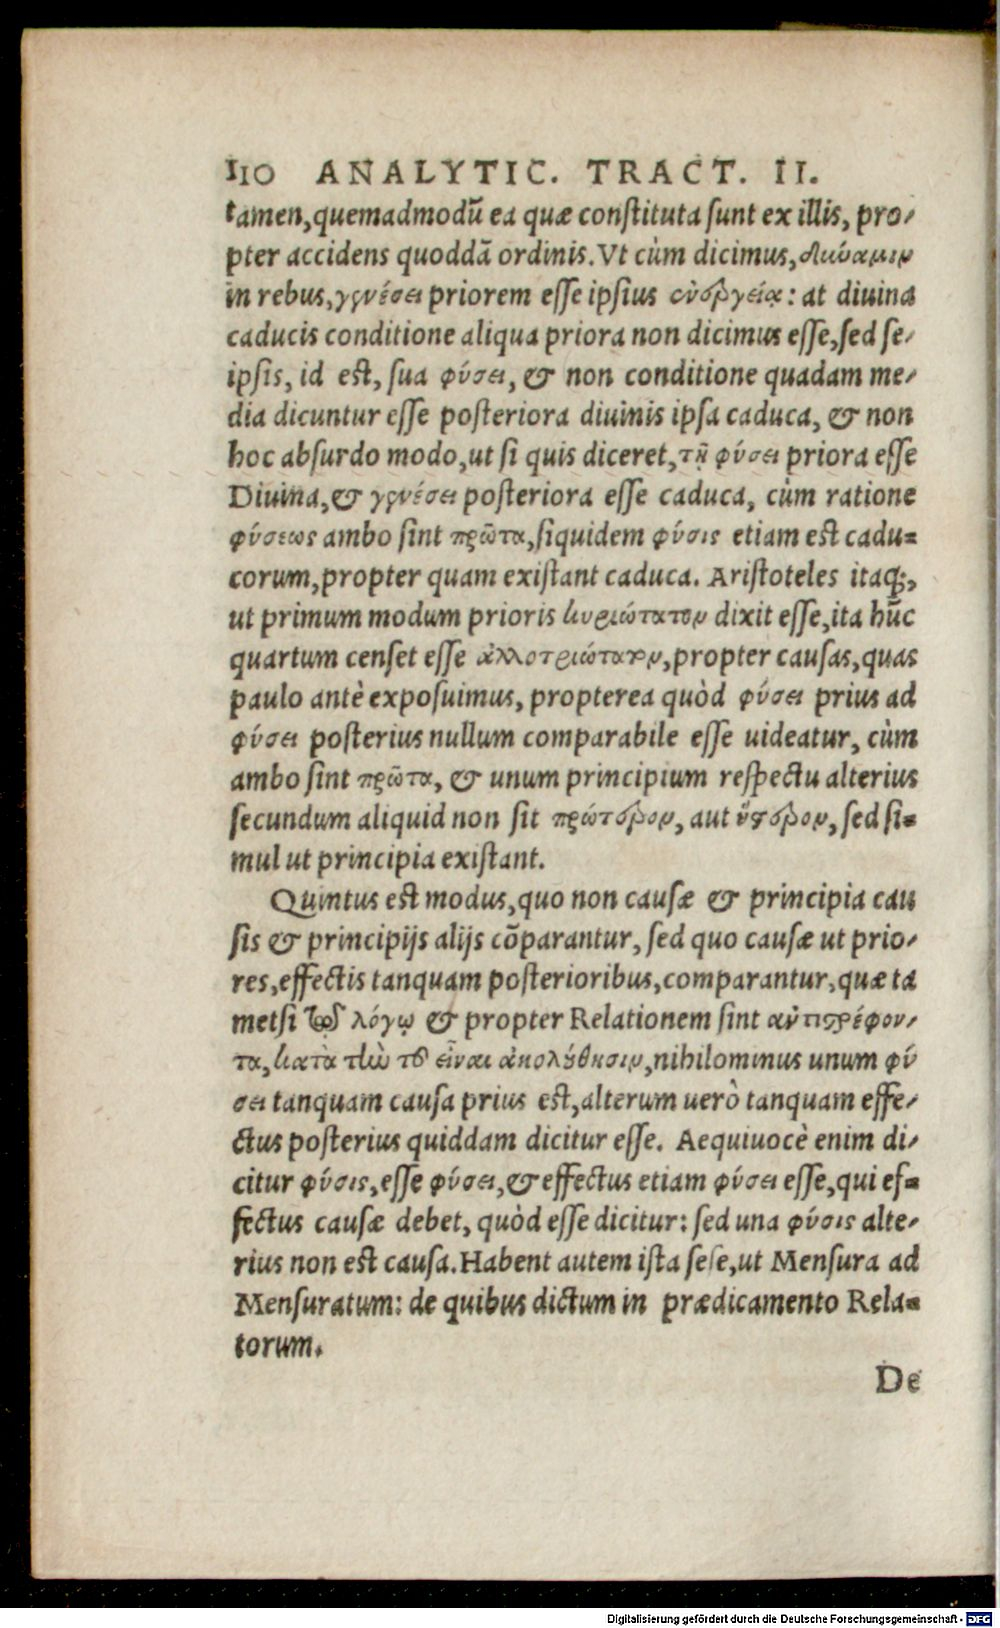 110 ANALYTIC. TRACT. II.
tamen, quemadmodū ea quæ constituta sunt ex illis, pro-
pter accidens quoddā ordinis. Vt cùm dicimus, δύναμιν
in rebus, γενέσει priorem esse ipsius ἐνεργείᾳ: at diuina
caducis conditione aliqua priora non dicimus esse, sed se-
ipsis, id est, sua φύσει, & non conditione quadam me-
dia dicuntur esse posteriora diuinis ipsa caduca, & non
hoc absurdo modo, ut si quis diceret, τῇ φύσει priora esse
Diuina, & γενέσει posteriora esse caduca, cùm ratione
φύσεως ambo sint πρῶτα, siquidem φύσις etiam est cadu-
corum, propter quam existant caduca. Aristoteles itaq;,
ut primum modum prioris κυριώτατον dixit esse, ita hūc
quartum censet esse ἀλλοτριώτατον, propter causas, quas
paulo antè exposuimus, propterea quòd φύσει prius ad
φύσει posterius nullum comparabile esse uideatur, cùm
ambo sint πρῶτα, & unum principium respectu alterius
secundum aliquid non sit πρότερον, aut ὕστερον, sed si-
mul ut principia existant.
Quintus est modus, quo non causæ & principia cau
sis & principijs alijs cōparantur, sed quo causæ ut prio-
res, effectis tanquam posterioribus, comparantur, quæ ta
metsi λόγῳ & propter Relationem sint ἀντιστρέφον-
τα, κατὰ τὴν τοῦ εἶναι ἀκολούθησιν, nihilominus unum φύ
σει tanquam causa prius est, alterum uerò tanquam effe-
ctus posterius quiddam dicitur esse. Aequiuocè enim di-
citur φύσις, esse φύσει, & effectus etiam φύσει esse, qui ef-
fectus causæ debet, quòd esse dicitur: sed una φύσις alte-
rius non est causa. Habent autem ista sese, ut Mensura ad
Mensuratum: de quibus dictum in prædicamento Rela-
torum.
De
Digitalisierung gefördert durch die Deutsche Forschungsgemeinschaft - DFG